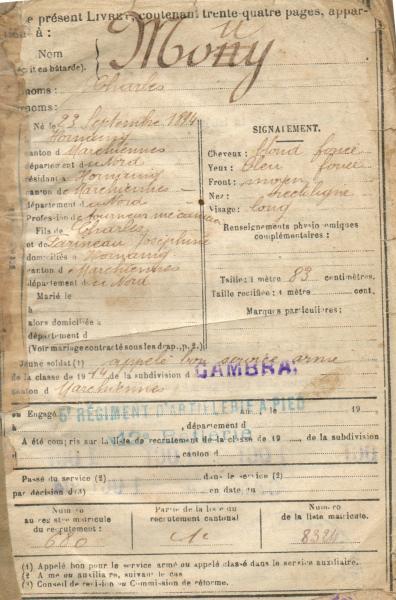 e présent LIVRET, contenant trente-quatre pages, appar-
à :
Nom
it en bâtarde).
noms : Charles
noms :
Né le 23 Septembre 1894
Hornaing
canton d Marchiennes
département d u Nord
résidant à Hornaing
canton de Marchiennes
département d u Nord
Profession de
Fils de Charles
et de Joséphine
domiciliés à Hornaing
canton d Marchiennes
département d u Nord
Marié le
à
alors domiciliée à
département d
(Voir mariage contracté sous les drap., p. 2.)
SIGNALEMENT.
Cheveux : blond foncé
Yeux : bleu foncé
Front : moyen
Nez : rectiligne
Visage : long
Renseignements physionomiques
complémentaires :
Taille : 1 mètre 83 centimètres.
Taille rectifiée : 1 mètre cent.
Marques particulières :
Jeune soldat (1) appelé bon service armé
de la classe de 1914 de la subdivision d CAMBRAI
canton d Marchiennes
ou Engagé à le 19
5e RÉGIMENT D'ARTILLERIE A PIED
à , département d
Batterie
A été compris sur la liste de recrutement de la classe de 19 , de la subdivision
d canton d
Passé du service (2) dans le service (2)
par décision d (3) en date du
Numéro
au registre matricule
du recrutement :
680
Partie de la liste du
recrutement cantonal
1e
Numéro
de la liste matricule.
8324
(1) Appelé bon pour le service armé ou appelé classé dans le service auxiliaire.
(2) Armé ou auxiliaire, suivant le cas
(3) Conseil de revision ou Commission de réforme.